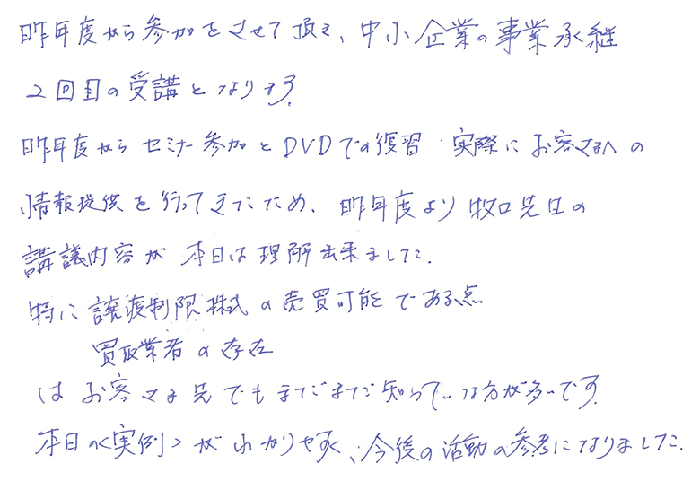 昨年度から参加をさせて頂き、中小企業の事業承継
2回目の受講となります。
昨年度からセミナー参加とDVDでの復習 実際にお客さまへの
情報提供を行ってきたため、昨年度より牧口先生の
講議内容が本日は理解出来ました。
特に譲渡制限株式の売買可能である点
買取業者の存在
はお客さま先でもまだまだ知っている方が多いです。
本日の〈実例〉がわかりやすく、今後の活動の参考になりました。